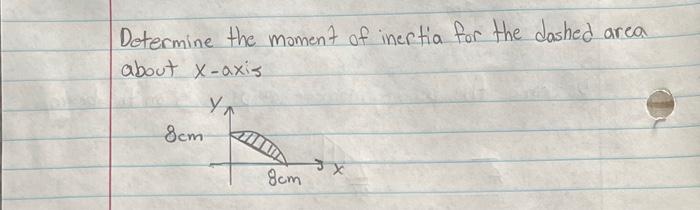 Determine the moment of inertia for the dashed area
about x-axis
y
8cm
x
8cm